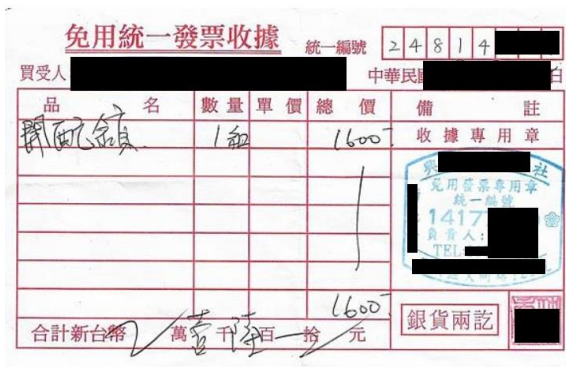 免用統一發票收據
統一編號 24814
買受人 中華民國 日
品名 數量 單價 總價 備註
1 1600
收據專用章
社
免用發票專用章
統一編號
1417
負責人:
TEL
1600
合計新台幣 萬壹千陸百 拾 元
銀貨兩訖